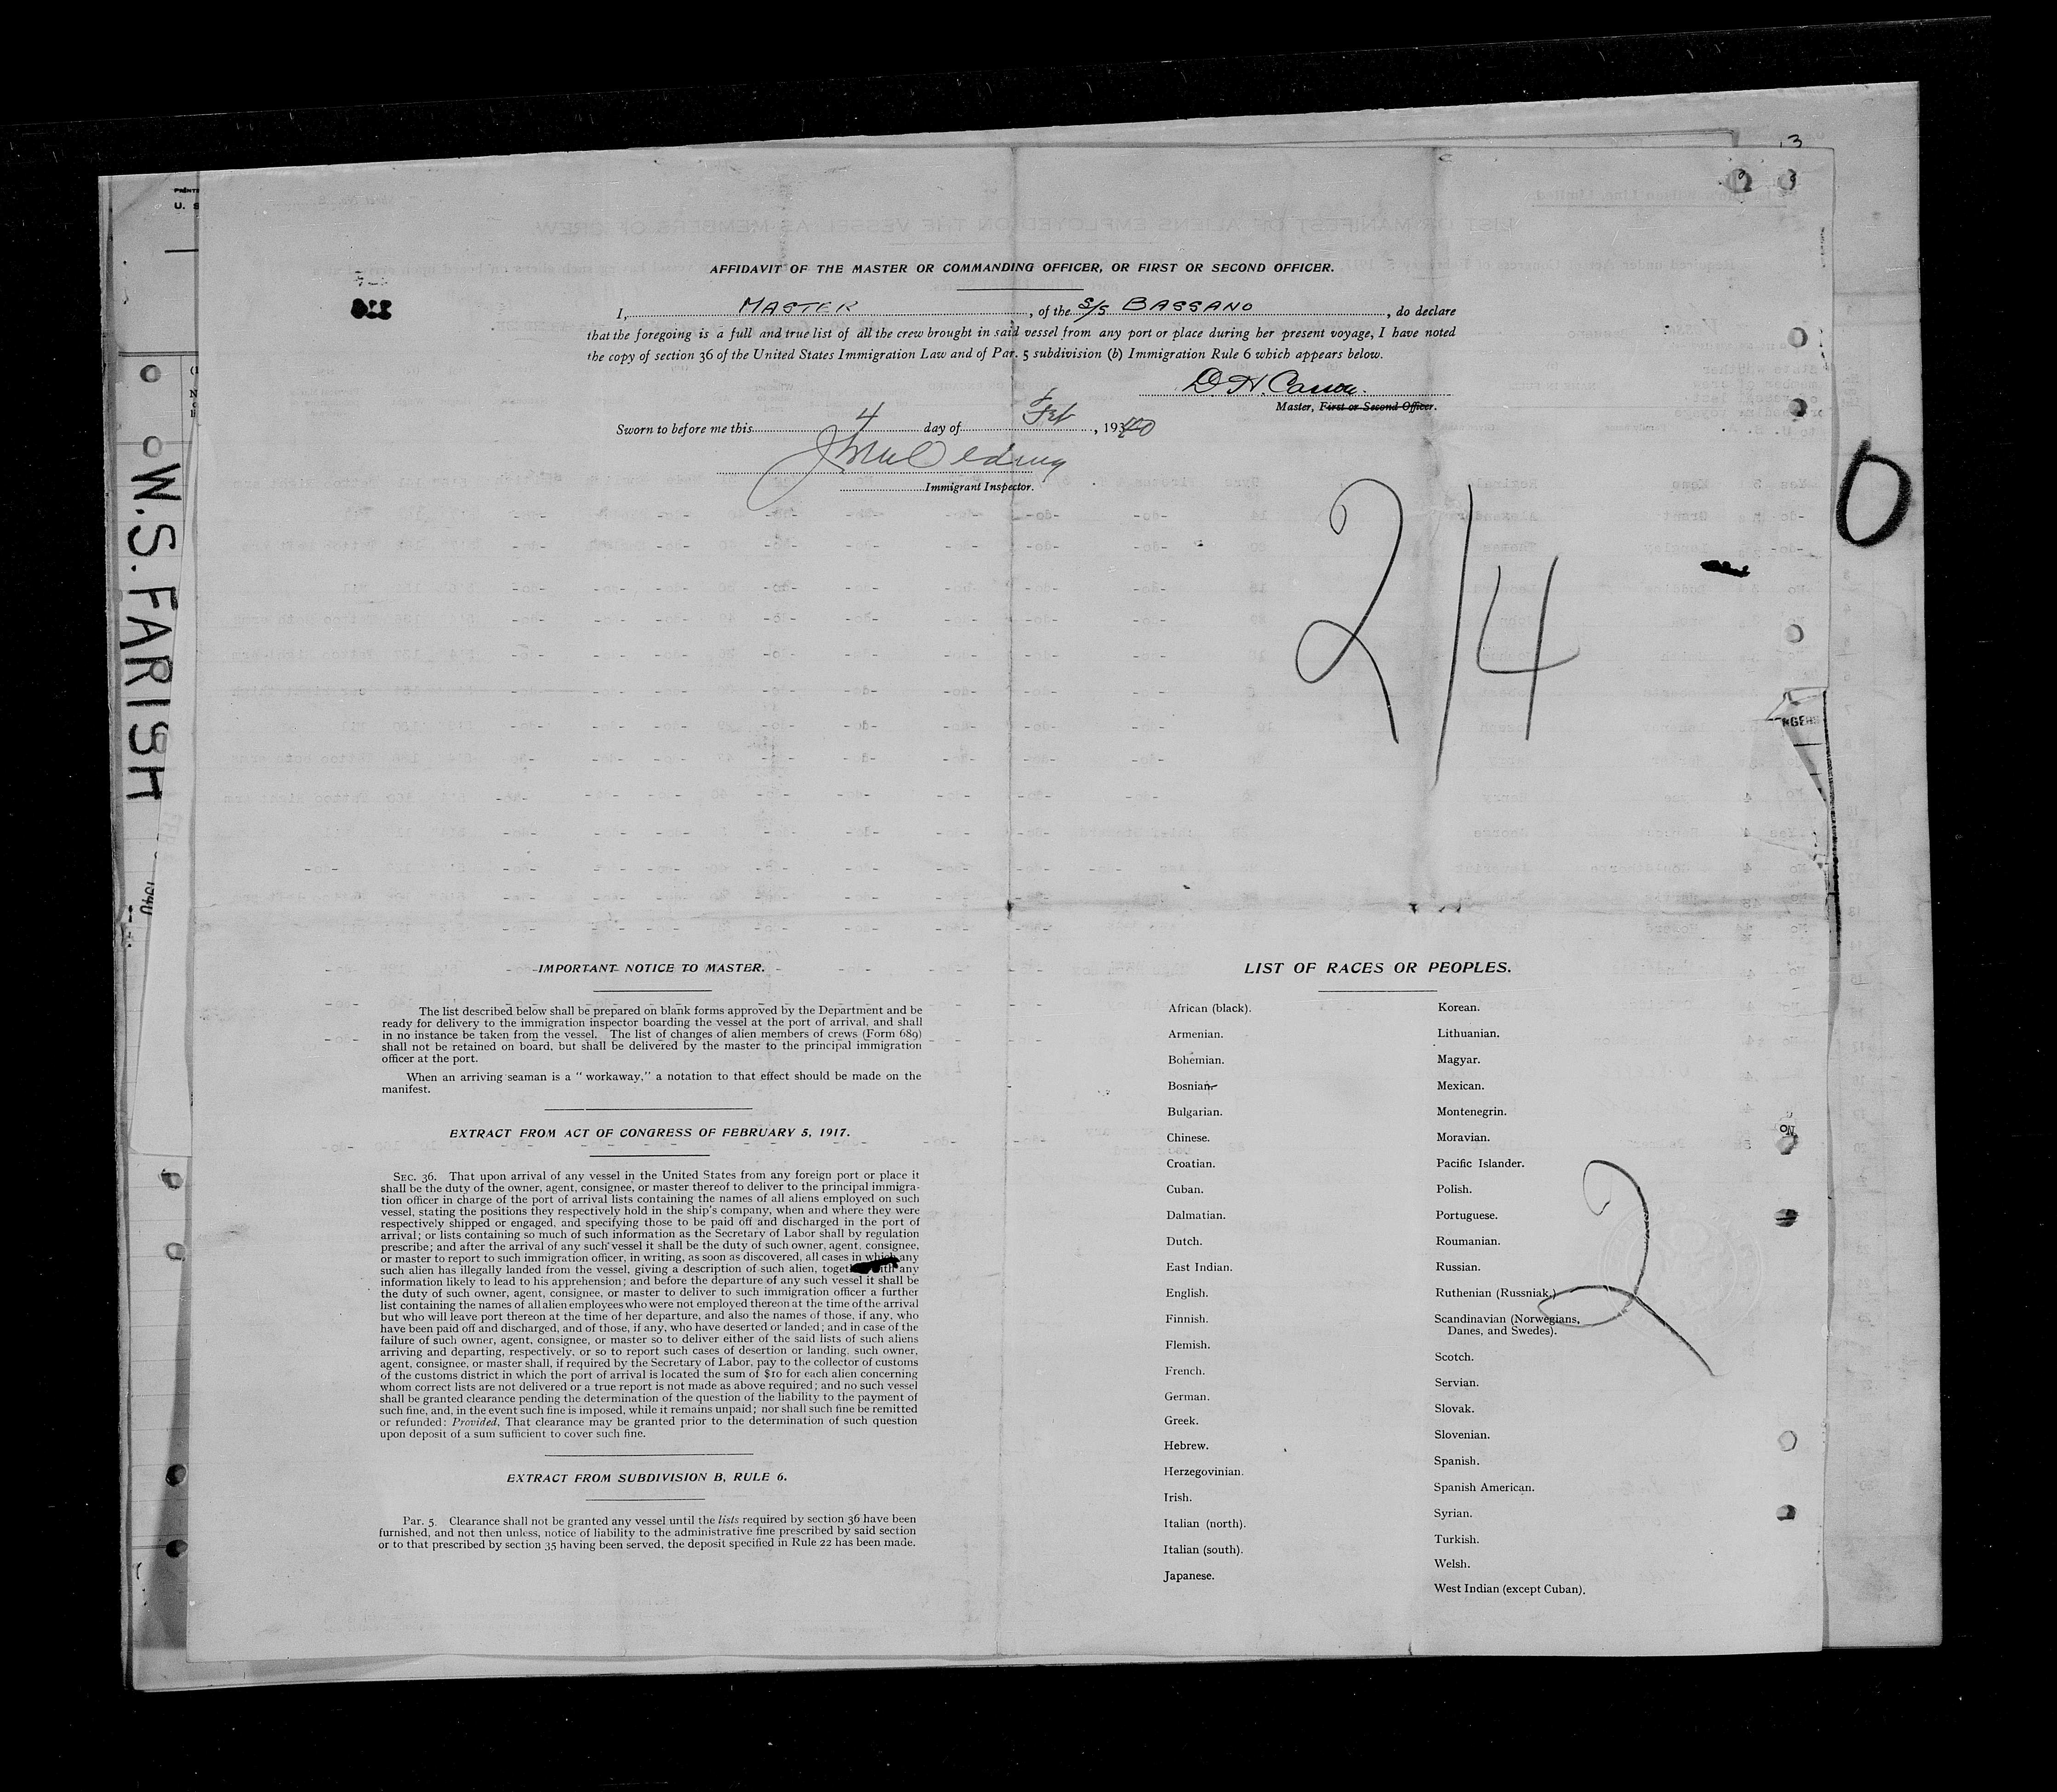 AFFIDAVIT OF THE MASTER OR COMMANDING OFFICER, OR FIRST OR SECOND OFFICER.
I, MASTER, of the S/S BASSANO, do declare
that the foregoing is a full and true list of all the crew brought in said vessel from any port or place during her present voyage, I have noted
the copy of section 36 of the United States Immigration Law and of Par. 5 subdivision (b) Immigration Rule 6 which appears below.
D H.
Master, First or Second Officer.
Sworn to before me this 4 day of Feb, 1940
Immigrant Inspector.
2/4
0
W.S. FARISH
1940
IMPORTANT NOTICE TO MASTER.
The list described below shall be prepared on blank forms approved by the Department and be
ready for delivery to the immigration inspector boarding the vessel at the port of arrival, and shall
in no instance be taken from the vessel. The list of changes of alien members of crews (Form 689)
shall not be retained on board, but shall be delivered by the master to the principal immigration
officer at the port.
When an arriving seaman is a " workaway," a notation to that effect should be made on the
manifest.
EXTRACT FROM ACT OF CONGRESS OF FEBRUARY 5, 1917.
SEC. 36. That upon arrival of any vessel in the United States from any foreign port or place it
shall be the duty of the owner, agent, consignee, or master thereof to deliver to the principal immigra-
tion officer in charge of the port of arrival lists containing the names of all aliens employed on such
vessel, stating the positions they respectively hold in the ship's company, when and where they were
respectively shipped or engaged, and specifying those to be paid off and discharged in the port of
arrival; or lists containing so much of such information as the Secretary of Labor shall by regulation
prescribe; and after the arrival of any such vessel it shall be the duty of such owner, agent, consignee,
or master to report to such immigration officer, in writing, as soon as discovered, all cases in which any
such alien has illegally landed from the vessel, giving a description of such alien, together with any
information likely to lead to his apprehension; and before the departure of any such vessel it shall be
the duty of such owner, agent, consignee, or master to deliver to such immigration officer a further
list containing the names of all alien employees who were not employed thereon at the time of the arrival
but who will leave port thereon at the time of her departure, and also the names of those, if any, who
have been paid off and discharged, and of those, if any, who have deserted or landed; and in case of the
failure of such owner, agent, consignee, or master so to deliver either of the said lists of such aliens
arriving and departing, respectively, or so to report such cases of desertion or landing, such owner,
agent, consignee, or master shall, if required by the Secretary of Labor, pay to the collector of customs
of the customs district in which the port of arrival is located the sum of $10 for each alien concerning
whom correct lists are not delivered or a true report is not made as above required; and no such vessel
shall be granted clearance pending the determination of the question of the liability to the payment of
such fine, and, in the event such fine is imposed, while it remains unpaid; nor shall such fine be remitted
or refunded: Provided, That clearance may be granted prior to the determination of such question
upon deposit of a sum sufficient to cover such fine.
EXTRACT FROM SUBDIVISION B, RULE 6.
Par. 5. Clearance shall not be granted any vessel until the lists required by section 36 have been
furnished, and not then unless, notice of liability to the administrative fine prescribed by said section
or to that prescribed by section 35 having been served, the deposit specified in Rule 22 has been made.
LIST OF RACES OR PEOPLES.
African (black).
Armenian.
Bohemian.
Bosnian.
Bulgarian.
Chinese.
Croatian.
Cuban.
Dalmatian.
Dutch.
East Indian.
English.
Finnish.
Flemish.
French.
German.
Greek.
Hebrew.
Herzegovinian.
Irish.
Italian (north).
Italian (south).
Japanese.
Korean.
Lithuanian.
Magyar.
Mexican.
Montenegrin.
Moravian.
Pacific Islander.
Polish.
Portuguese.
Roumanian.
Russian.
Ruthenian (Russniak.)
Scandinavian (Norwegians,
Danes, and Swedes).
Scotch.
Servian.
Slovak.
Slovenian.
Spanish.
Spanish American.
Syrian.
Turkish.
Welsh.
West Indian (except Cuban).
2